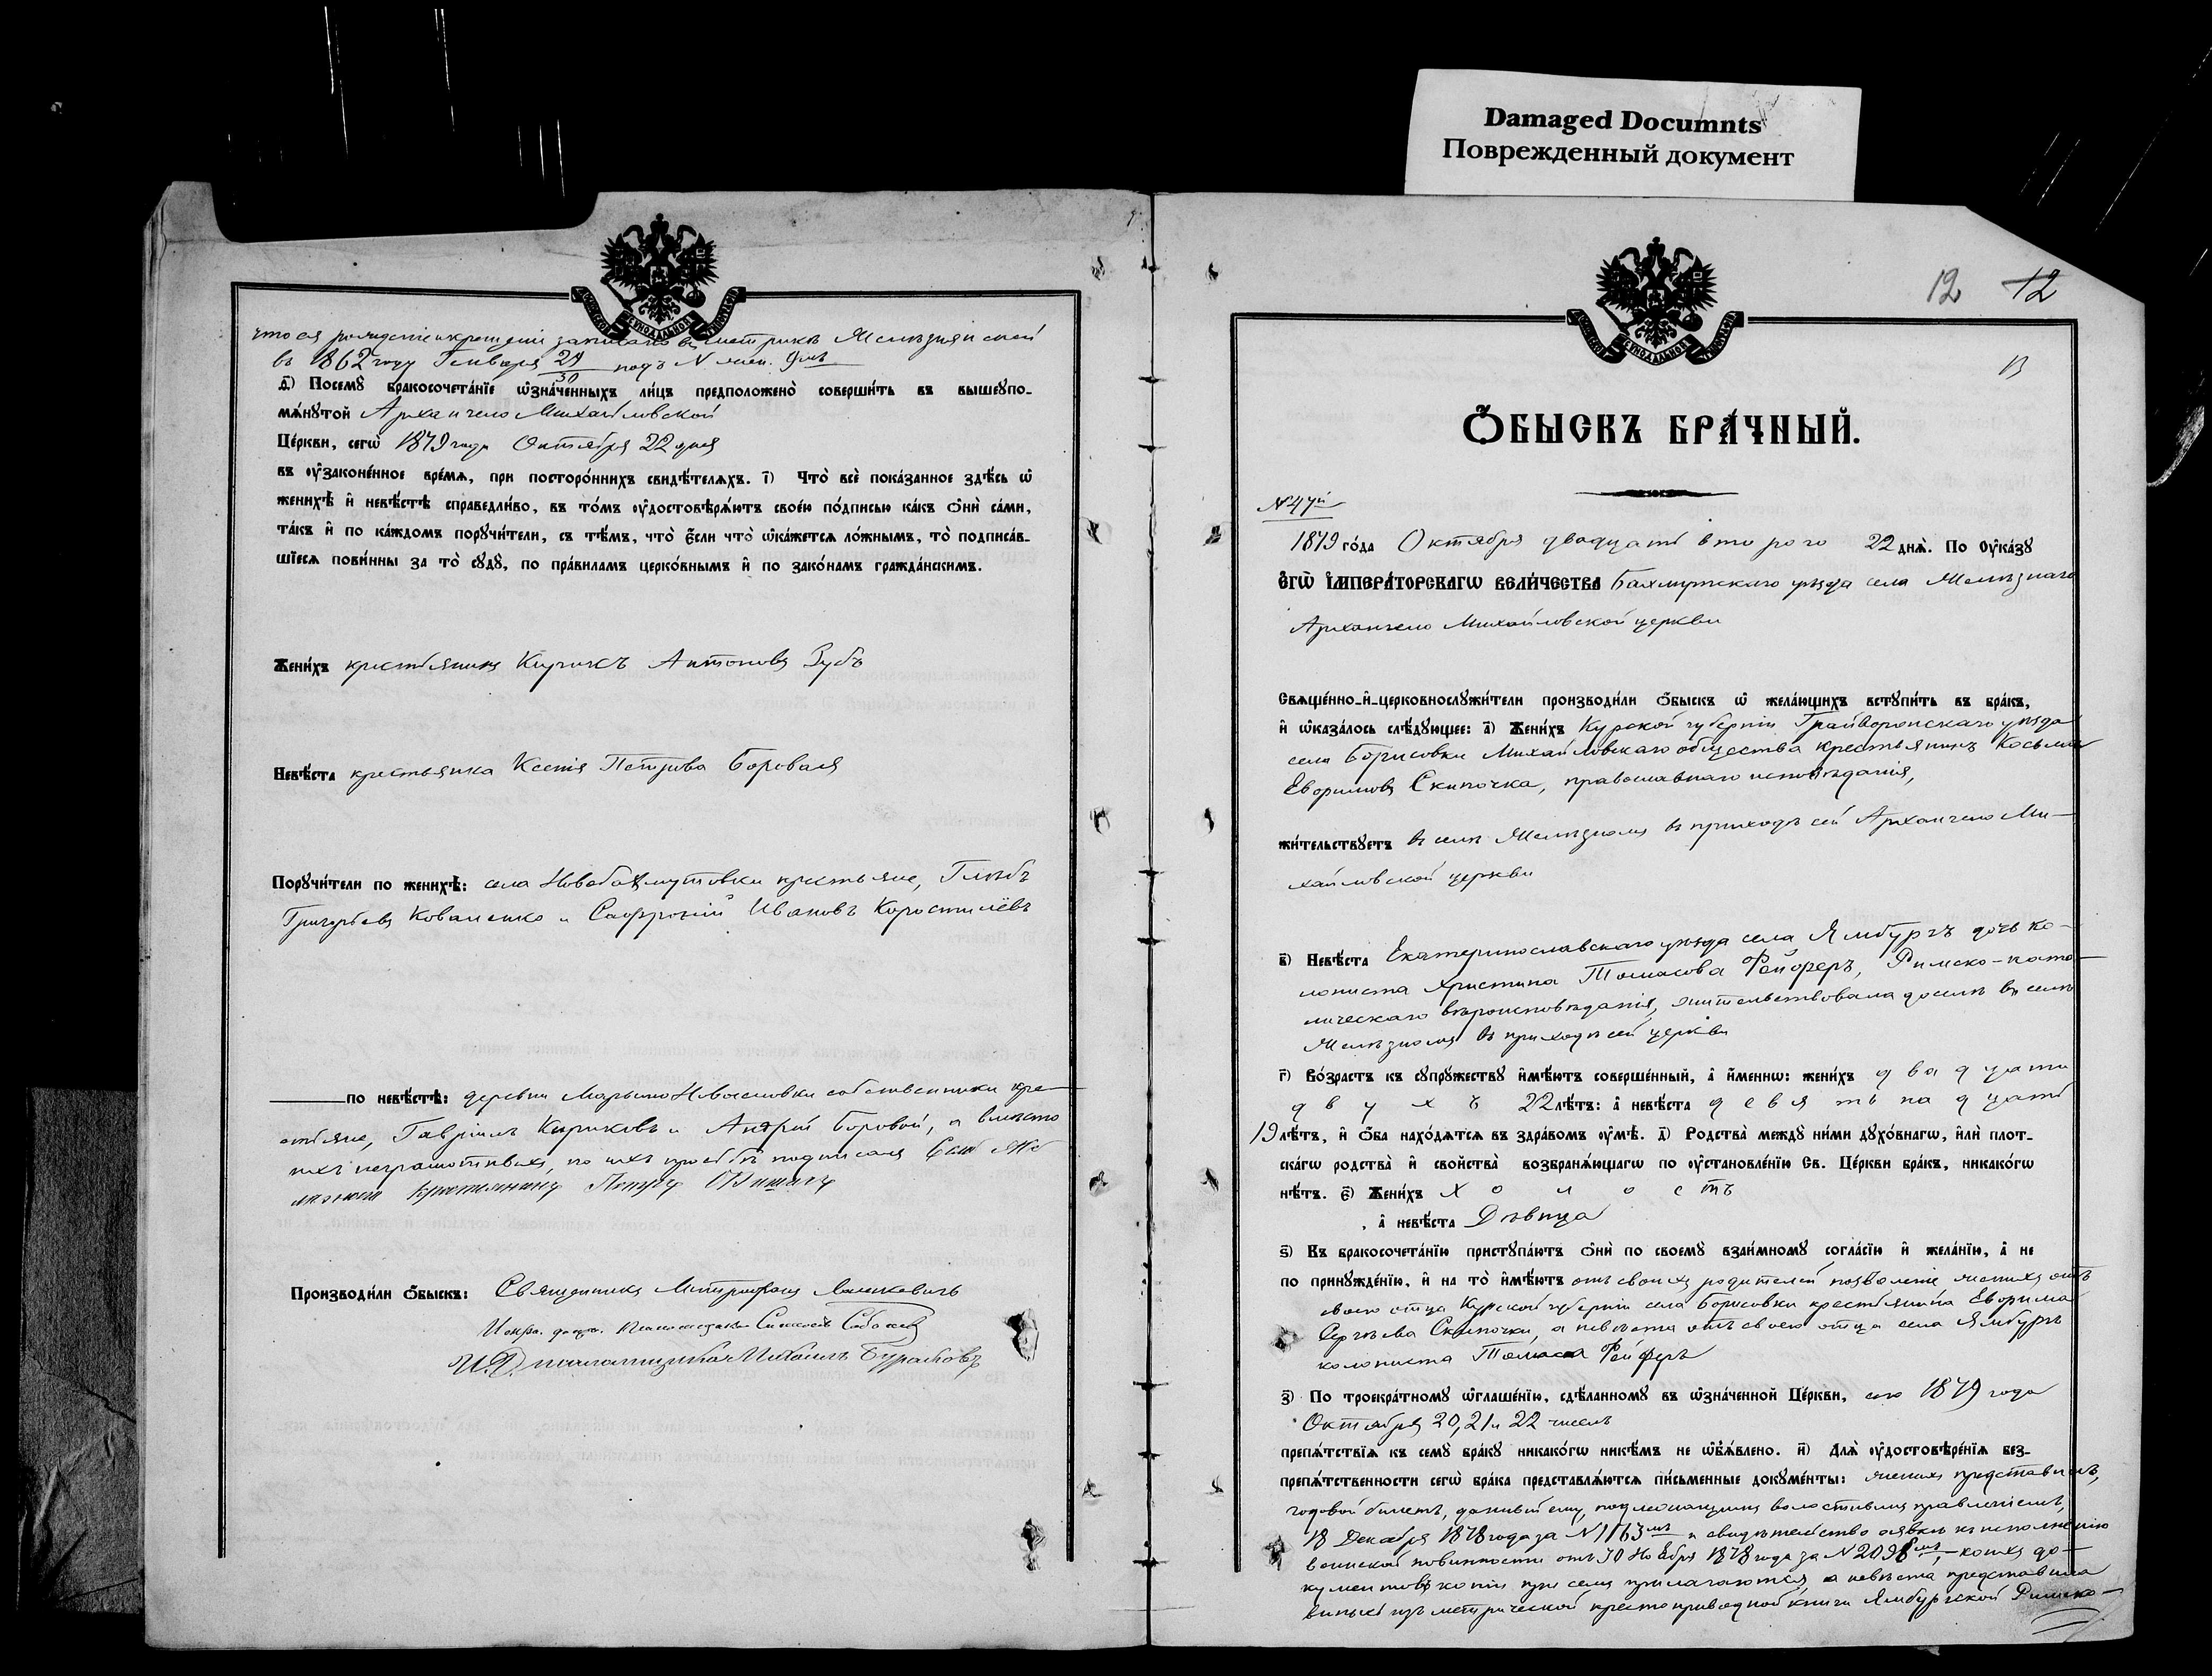 Damaged Documnts
Поврежденный документ
что ея рождение и крещение записано въ метрикѣ Желѣзнянской
въ 1862 году Генваря 29/30 подъ N жен. 9мъ
д҃) Посемꙋ бракосочетанїе ѡзначенныхъ лицъ предположено совершить въ вышеꙋпо-
мянꙋтой Архангело Михайловской
Церкви, сегѡ 1879 года Октября 22 дня
въ ꙋзаконенное время, при постороннихъ свидѣтеляхъ. і҃) Что все показанное здѣсь ѡ
женихѣ и невѣстѣ справедливо, въ томъ ꙋдостовѣряютъ своею подписью какъ ѻни сами,
такъ и по каждомъ порꙋчители, съ тѣмъ, что если что ѡкажется ложнымъ, то подписав-
шїеся повинны за то сꙋдꙋ, по правиламъ церковнымъ и по законамъ гражданскимъ.
Женихъ крестьянинъ Кирикъ Антоновъ Зубъ
Невѣста крестьянка Ксенія Петрова Боровая
Порꙋчители по женихѣ: села Новобахмутовки крестьяне, Глѣбъ
Григорьевъ Коваленко и Софроній Ивановъ Коростилёвъ
по невѣстѣ: деревни Марьино собственники кре-
стьяне, Гавріилъ Кириковъ и Андрей Боровой, а вмѣсто
ихъ неграмотныхъ, по ихъ прозбѣ подписался Села Же
лѣзнаго крестьянинъ Петръ
Производили ѻбыскъ: Священникъ Митрофанъ
Испр. долж. псаломщика
И. Д. псаломщика Михаилъ Бураковъ
12 12
13
Ѻбыскъ брачный.
N 47й
1879 года Октября двадцать второго 22 дня. По ꙋказꙋ
Егѡ Императорскагѡ Величества Бахмутскаго уѣзда села Желѣзнаго
Архангело Михайловской церкви
Священно-и-церковнослꙋжители производили ѻбыскъ ѡ желающихъ встꙋпить въ бракъ,
и ѡказалось слѣдꙋющее: а҃) Женихъ Курской губерніи Грайворонскаго уѣзда
села Борисовки Михайловскаго общества крестьянинъ Косьма
Ефримовъ Скипочка, православнаго исповѣданія,
жительствꙋетъ въ селѣ Желѣзномъ въ приходѣ сей Архангело Ми-
хайловской церкви
в҃) Невѣста Екатеринославскаго уѣзда села Ямбургъ дочь ко-
лониста Христина Томасова Фейферъ, Римско-като-
лическаго вѣроисповѣданія, жительствовала доселѣ въ селѣ
Желѣзномъ въ приходѣ сей церкви
г҃) Возрастъ къ сꙋпрꙋжествꙋ имѣютъ совершенный, а именнѡ: женихъ двадцати
двухъ 22 лѣтъ: а невѣста девятнадцати
19 лѣтъ, и ѻба находятся въ здравомъ ꙋмѣ. д҃) Родства междꙋ ними дꙋховнагѡ, или плот-
скагѡ родства и свойства возбраняющагѡ по ꙋстановленїю Св. Церкви бракъ, никакогѡ
нѣтъ. є҃) Женихъ холостъ
, а невѣста Дѣвица
ѕ҃) Къ бракосочетанїю пристꙋпаютъ ѻни по своемꙋ взаимномꙋ согласїю и желанїю, а не
по принꙋжденїю, и на то имѣютъ отъ своихъ родителей позволеніе женихъ отъ
своего отца Курской губерніи села Борисовки крестьянина Ефрима
Сергѣева Скипочки, а невѣста отъ своего отца села Ямбургъ
колониста Томаса Фейферъ
з҃) По троекратномꙋ ѡглашенїю, сдѣланномꙋ въ ѡзначенной Церкви, сего 1879 года
Октября 20, 21 и 22 числъ
препятствїя къ семꙋ бракꙋ никакогѡ никѣмъ не ѡбъявлено. и҃) Для ꙋдостовѣренїя без-
препятственности сегѡ брака представляются письменные докꙋменты: женихъ представилъ,
годовой билетъ, данный ему, подлежащимъ волостнымъ правленіемъ,
18 Декабря 1878 года за N 1163мъ и свидѣтельство о явкѣ къ исполненію
воинской повинности отъ 30 Ноября 1878 года за N 2098мъ,- коихъ до-
кументовъ копіи при семъ прилагаются, а невѣста представила
выпись изъ метрической книги Ямбургской Римско-